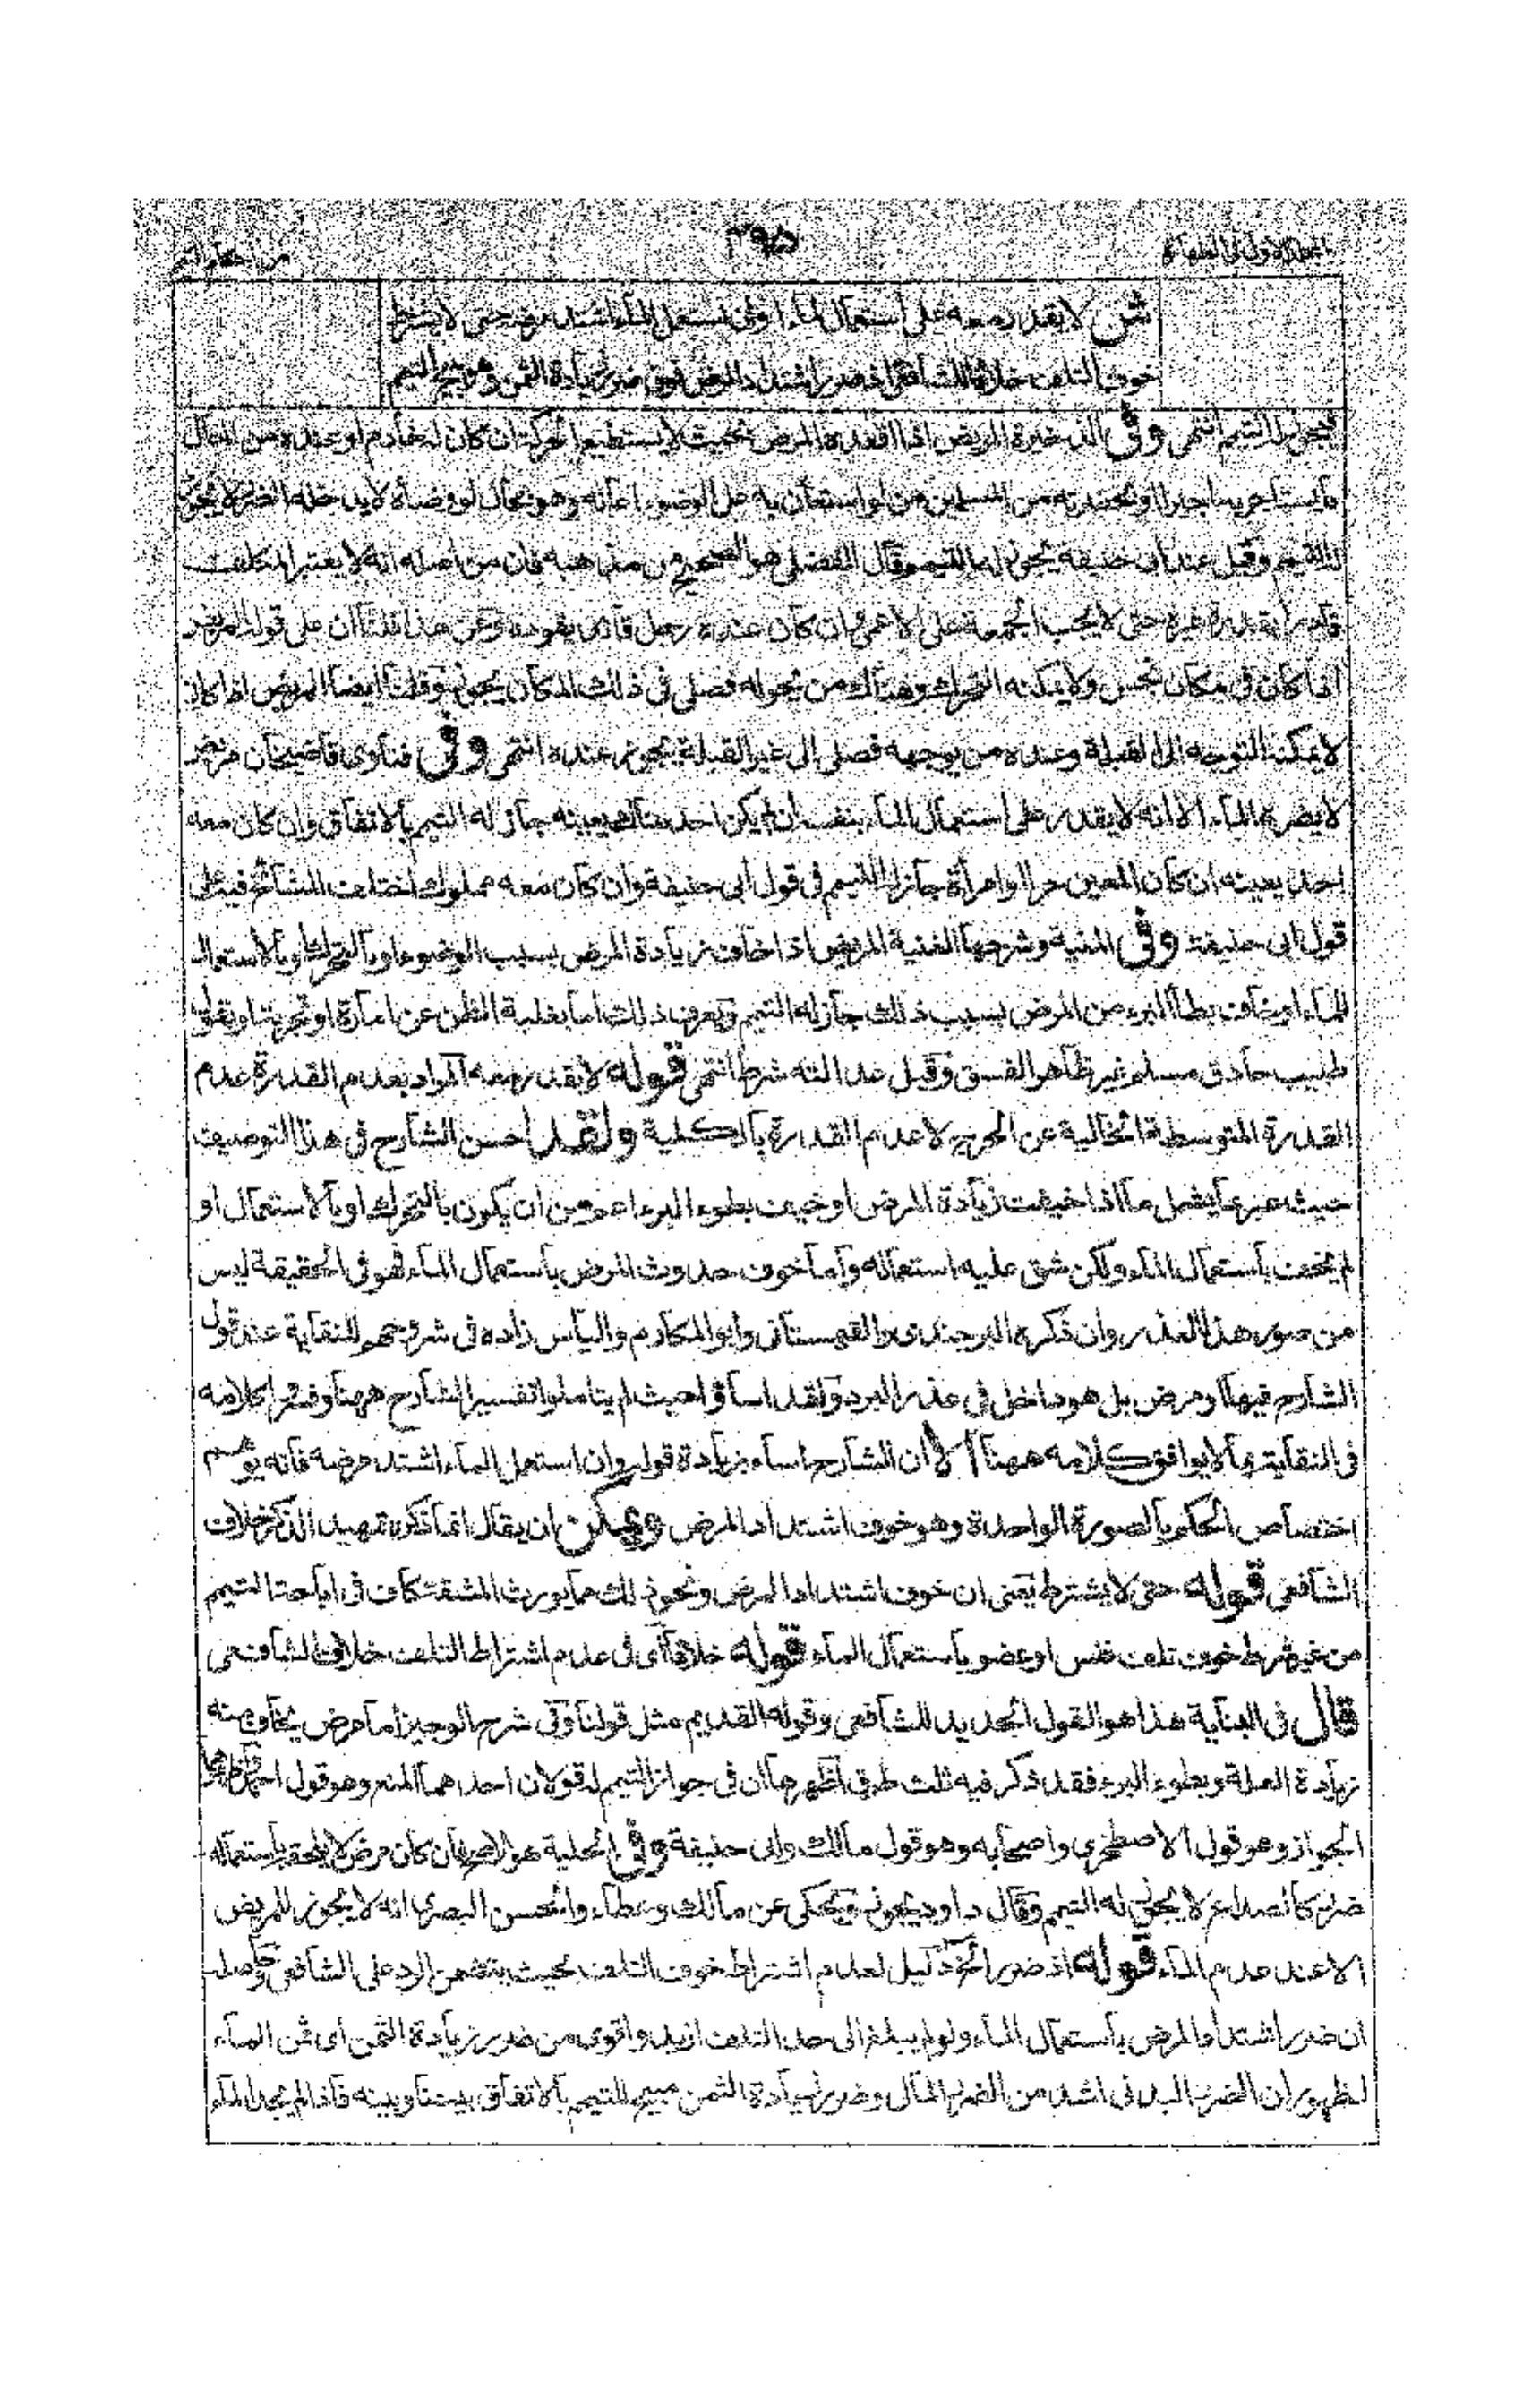 ٣٩٥
ش لا يقدر معه على استعمال الماء او ان استعمل الماء اشتد مرضه حتى لا يشترط
خوف التلف خلافا للشافعى اذ ضرر اشتداد المرض فوق ضرر زيادة الثمن وهو يبيح التيمم
يجوز له التيمم انتهى وفى الذخيرة المريض اذا اقعده المرض بحيث لا يستطيع الحركة ان كان له خادم او عنده من المال
ما يستاجر به اجيرا او بحضرته من المسلمين من لو استعان به على الوضوء اعانه وهو بحال لو وضأه لا يدخله الضرر لا يجوز
له التيمم وقيل عند ابى حنيفة يجوز له التيمم وقال الفضلى هو الصحيح من مذهبه فان من اصله انه لا يعتبر المكلف
قادرا بقدرة غيره حتى لا يجب الجمعة على الاعمى وان كان عنده رجل قادر يقوده وعن هذا قلنا ان على قوله المريض
اذا كان فى مكان نجس ولا يمكنه التحول وهناك من يحوله فصلى فى ذلك المكان يجوز وقلنا ايضا المريض اذا كان
لا يمكنه التوجه الى القبلة وعنده من يوجهه فصلى الى غير القبلة يجوز عنده انتهى وفى فتاوى قاضيخان مريض
لا يضره الماء الا انه لا يقدر على استعمال الماء بنفسه ان لم يكن احد هناك يعينه جاز له التيمم بالاتفاق وان كان معه
احد يعينه ان كان المعين حرا او امرأة جاز له التيمم فى قول ابى حنيفة وان كان معه مملوك اختلف المشائخ فيه على
قول ابى حنيفة وفى المنية وشرحها الغنية المريض اذا خاف زيادة المرض بسبب الوضوء او بالتحرك او بالاستعمال
للماء او خاف بطأ البرء من المرض بسبب ذلك جاز له التيمم ويعرف ذلك اما بغلبة الظن عن امارة او تجربة او بقول
طبيب حاذق مسلم غير ظاهر الفسق وقيل عدالته شرط انتهى قوله لا يقدر معه المراد بعدم القدرة عدم
القدرة المتوسطة الخالية عن الحرج لا عدم القدرة بالكلية ولقد احسن الشارح فى هذا التوصيف
حيث عبر بما يشمل ما اذا خيفت زيادة المرض او خيف بطوء البرء اعم من ان يكون بالتحرك او بالاستعمال او
لم يخف باستعمال الماء ولكن شق عليه استعماله واما خوف حدوث المرض باستعمال الماء فهو فى الحقيقة ليس
من صور هذا العذر وان ذكره البرجندى والقهستانى وابو المكارم والياس زاده فى شروحهم للنقاية عند قول
الشارح فيها او مرض بل هو داخل فى عذر البرد ولقد اساؤا حيث لم يتاملوا تفسير الشارح ههنا وفسروا كلامه
فى النقاية بما لا يوافق كلامه ههنا الا ان الشارح اساء بزيادة قوله وان استعمل الماء اشتد مرضه فانه يوهم
اختصاص الحكم بالصورة الواحدة وهو خوف اشتداد المرض ويمكن ان يقال انما ذكره تمهيد الذكر خلاف
الشافعى قوله حتى لا يشترط يعنى ان خوف اشتداد المرض ونحو ذلك مما يورث المشقة كاف فى اباحة التيمم
من غير شرط خوف تلف نفس او عضو باستعمال الماء قوله خلافا اى فى عدم اشتراط التلف خلاف الشافعى
قال فى البناية هذا هو القول الجديد للشافعى وقوله القديم مثل قولنا وفى شرح الوجيز اما مرض يخاف منه
زيادة العلة وبطوء البرء فقد ذكر فيه ثلث طرق اظهرها ان فى جواز التيمم له قولان احدهما المنع وهو قول احمد
الجواز وهو قول الاصطخرى واصحابه وهو قول مالك وابى حنيفة وفى الحلية هو الاصح فان كان مرض لا يلحقه باستعماله
ضرر كالصداع لا يجوز له التيمم وقال داود يجوز ويحكى عن مالك وعطاء والحسن البصرى انه لا يجوز للمريض
الا عند عدم الماء قوله اذ ضرر الخ دليل لعدم اشتراط خوف التلف بحيث يتضمن الرد على الشافعى وحاصله
ان ضرر اشتداد المرض باستعمال الماء ولو لم يبلغ الى حد التلف ازيد واقوى من ضرر زيادة الثمن اى ثمن الماء
لظهور ان الضرر البدنى اشد من الضرر المال وضرر زيادة الثمن مبيح للتيمم بالاتفاق بيننا وبينه فاذا لم يجد الماء